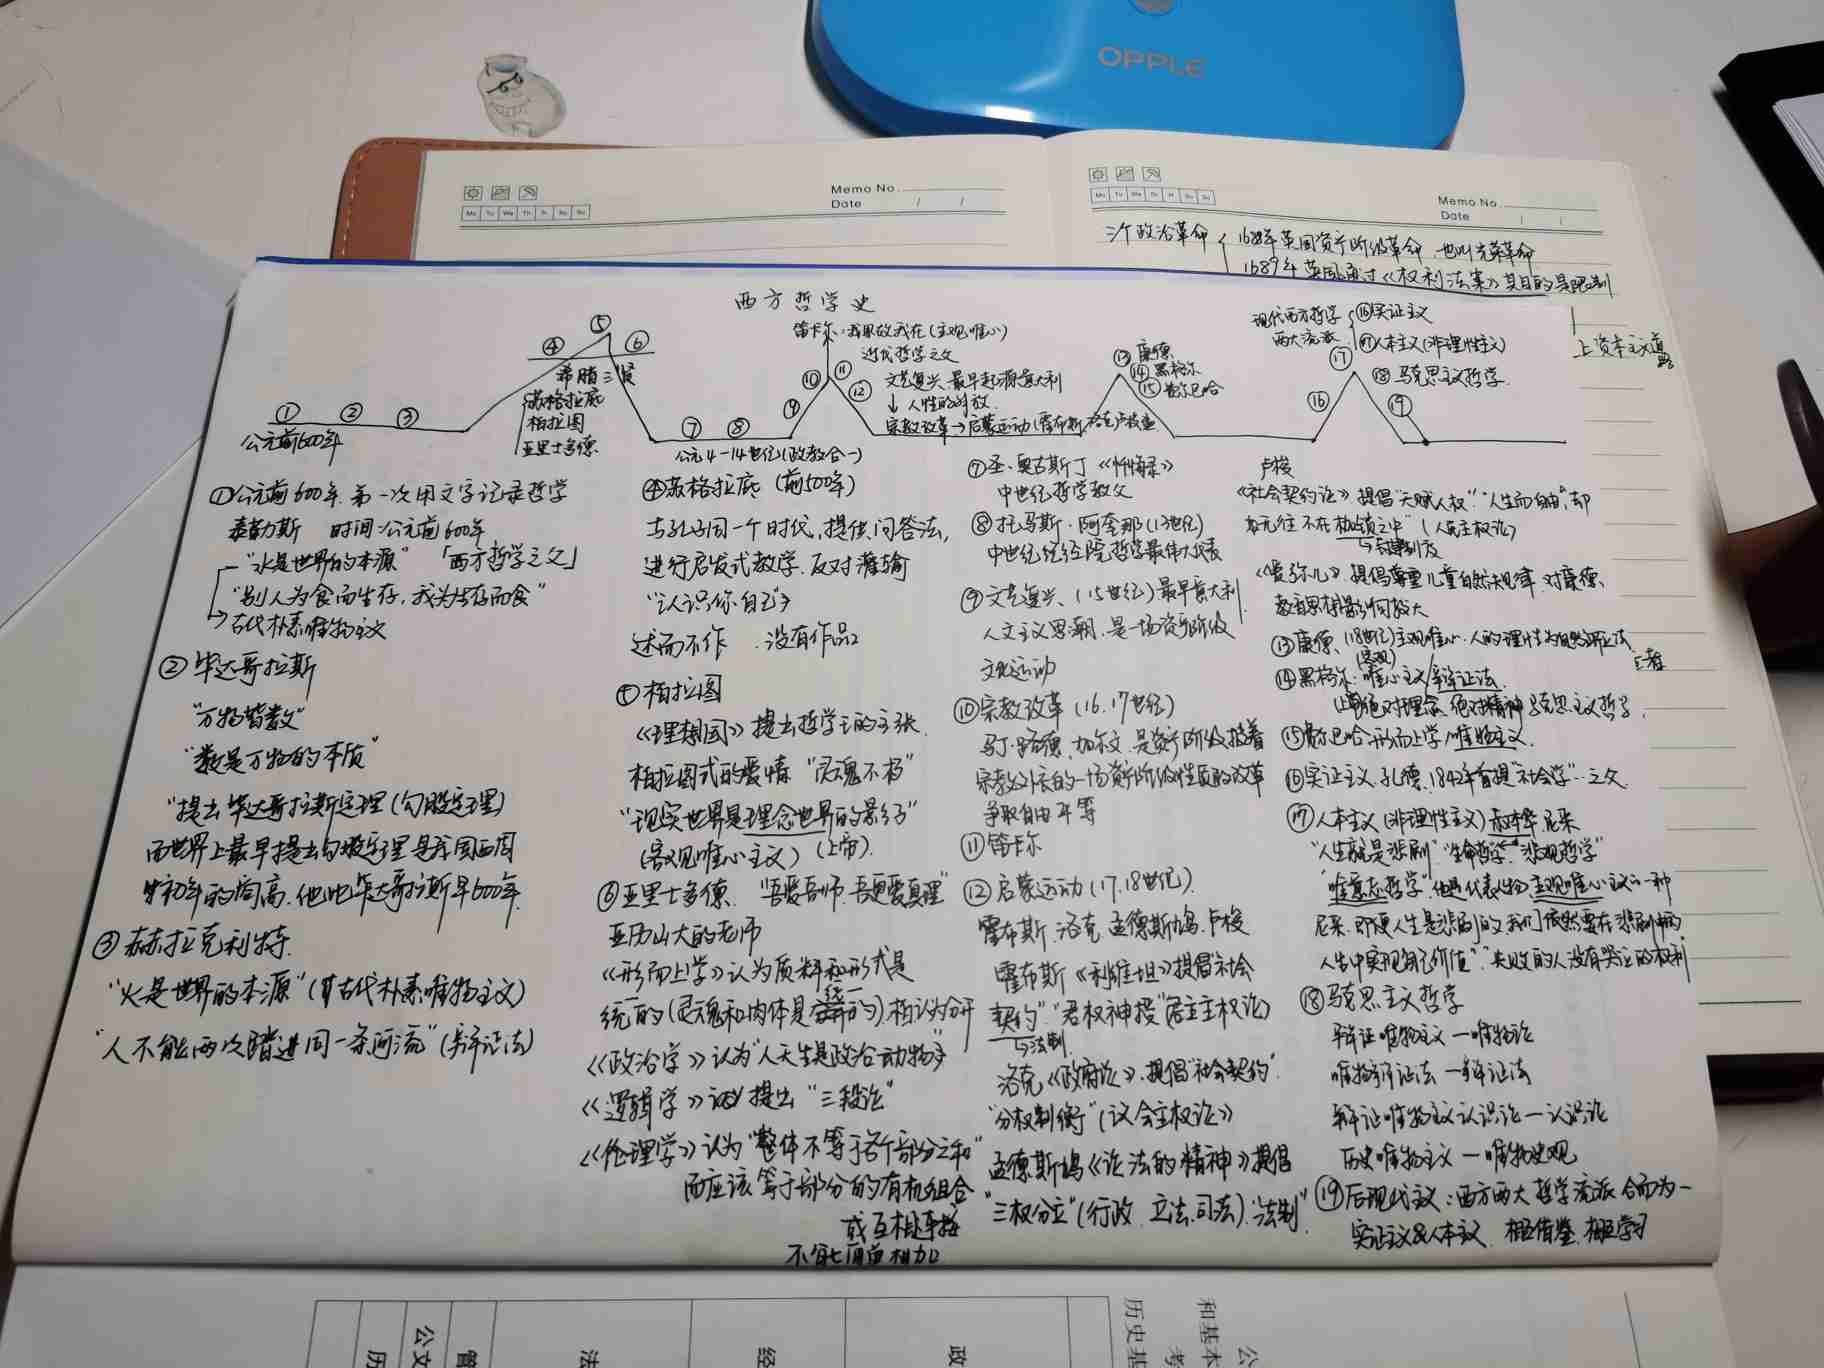 OPPLE
Memo No.
Date / /
Mo Tu We Th Fr Sa Su
Memo No.
Date / /
Mo Tu We Th Fr Sa Su
三个政治革命
1688年英国资产阶级革命 也叫光荣革命
1689年英国通过《权利法案》其目的是限制
上资本主义道路
西方哲学史
笛卡尔:我思故我在(主观唯心)
近代哲学之父
文艺复兴 最早起源意大利
↓ 人性的解放
宗教改革→启蒙运动(霍布斯 洛克 卢梭 孟
① ② ③ ④ ⑤ ⑥ ⑦ ⑧ ⑨ ⑩ ⑪ ⑫
公元前600年
希腊三贤
苏格拉底
柏拉图
亚里士多德
公元4-14世纪(政教合一)
⑬康德
⑭黑格尔
⑮费尔巴哈
现代西方哲学
两大流派
⑯实证主义
⑰人本主义(非理性主义)
⑱马克思主义哲学
⑯ ⑰ ⑲
①公元前600年.第一次用文字记录哲学
泰勒斯 时间:公元前600年
"水是世界的本源" 「西方哲学之父」
"别人为食而生存,我为生存而食"
→古代朴素唯物主义
②毕达哥拉斯
"万物皆数"
"数是万物的本质"
"提出毕达哥拉斯定理(勾股定理)
而世界上最早提出勾股定理是我国西周
初年的商高.他比毕达哥拉斯早600年.
③赫拉克利特.
"火是世界的本源"(古代朴素唯物主义)
"人不能两次踏进同一条河流"(辩证法)
④苏格拉底 (前500年)
与孔子同一个时代,提供问答法,
进行启发式教学.反对灌输
"认识你自己"
述而不作 .没有作品
柏拉图
《理想国》提出哲学王的主张.
柏拉图式的爱情 "灵魂不朽"
"现实世界是理念世界的影子"
(客观唯心主义) (上帝).
⑥亚里士多德. "吾爱吾师.吾更爱真理"
亚历山大的老师
《形而上学》认为质料和形式是
统一的(灵魂和肉体是统一的).柏认为分开
《政治学》认为"人天生是政治动物"
《逻辑学》提出 "三段论"
《伦理学》认为"整体不等于各个部分之和"
而应该等于部分的有机组合
或互相连接
不能简单相加
⑦圣·奥古斯丁《忏悔录》
中世纪哲学教父
⑧托马斯·阿奎那(13世纪)
中世纪经院哲学最伟大代表
⑨文艺复兴、(15世纪)最早意大利
人文主义思潮.是一场资产阶级
文化运动
⑩宗教改革(16.17世纪)
马丁·路德.加尔文.是资产阶级披着
宗教外衣的一场资产阶级性质的改革
争取自由平等
⑪笛卡尔
⑫启蒙运动(17.18世纪).
霍布斯.洛克.孟德斯鸠.卢梭
霍布斯《利维坦》提倡"社会
契约""君权神授"(君主主权论)
→法制
洛克《政府论》.提倡"社会契约".
"分权制衡"(议会主权论)
孟德斯鸠《论法的精神》提倡
"三权分立"(行政.立法.司法)."法制"
卢梭
《社会契约论》提倡"天赋人权""人生而自由,却
无往不在枷锁之中" (人民主权论)
→封建制度
《爱弥儿》.提倡尊重儿童自然规律.对康德.
教育思想影响较大
⑬康德.(18世纪)主观唯心.人的理性为自然立法
立法
⑭黑格尔:(客观)唯心主义/辩证法.
绝对理念.绝对精神.马克思主义哲学
⑮费尔巴哈形而上学/唯物主义.
⑯实证主义.孔德.1842年首提"社会学"之父
⑰人本主义(非理性主义)叔本华.尼采
"人生就是悲剧""生命哲学""悲观哲学"
"唯意志哲学"代表人物.主观唯心主义的一种
尼采.即使人生是悲剧的.我们依然要在悲剧中的
人生中实现自己价值"."失败的人没有哭泣的权利"
⑱马克思主义哲学
辩证唯物主义—唯物论
唯物辩证法—辩证法
辩证唯物主义认识论—认识论
历史唯物主义—唯物史观
⑲后现代主义:西方两大哲学流派合而为一
实证主义&人本主义.相互借鉴.相互学习
历
公文
管
法
经
政
历史基
和基本
考
公